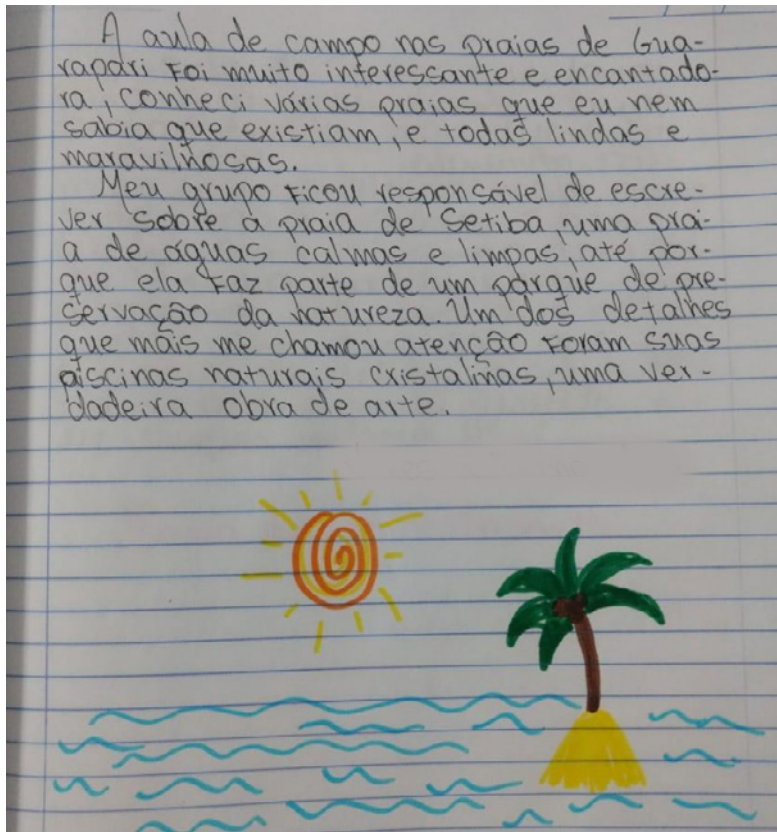 A aula de campo nas praias de Gua-
rapari foi muito interessante e encantado-
ra, conheci várias praias que eu nem
sabia que existiam, e todas lindas e
maravilhosas.
Meu grupo ficou responsável de escre-
ver sobre a praia de Setiba, uma prai-
a de águas calmas e limpas, até por-
que ela faz parte de um parque de pre-
servação da natureza. Um dos detalhes
que mais me chamou atenção foram suas
piscinas naturais cristalinas, uma ver-
dadeira obra de arte.